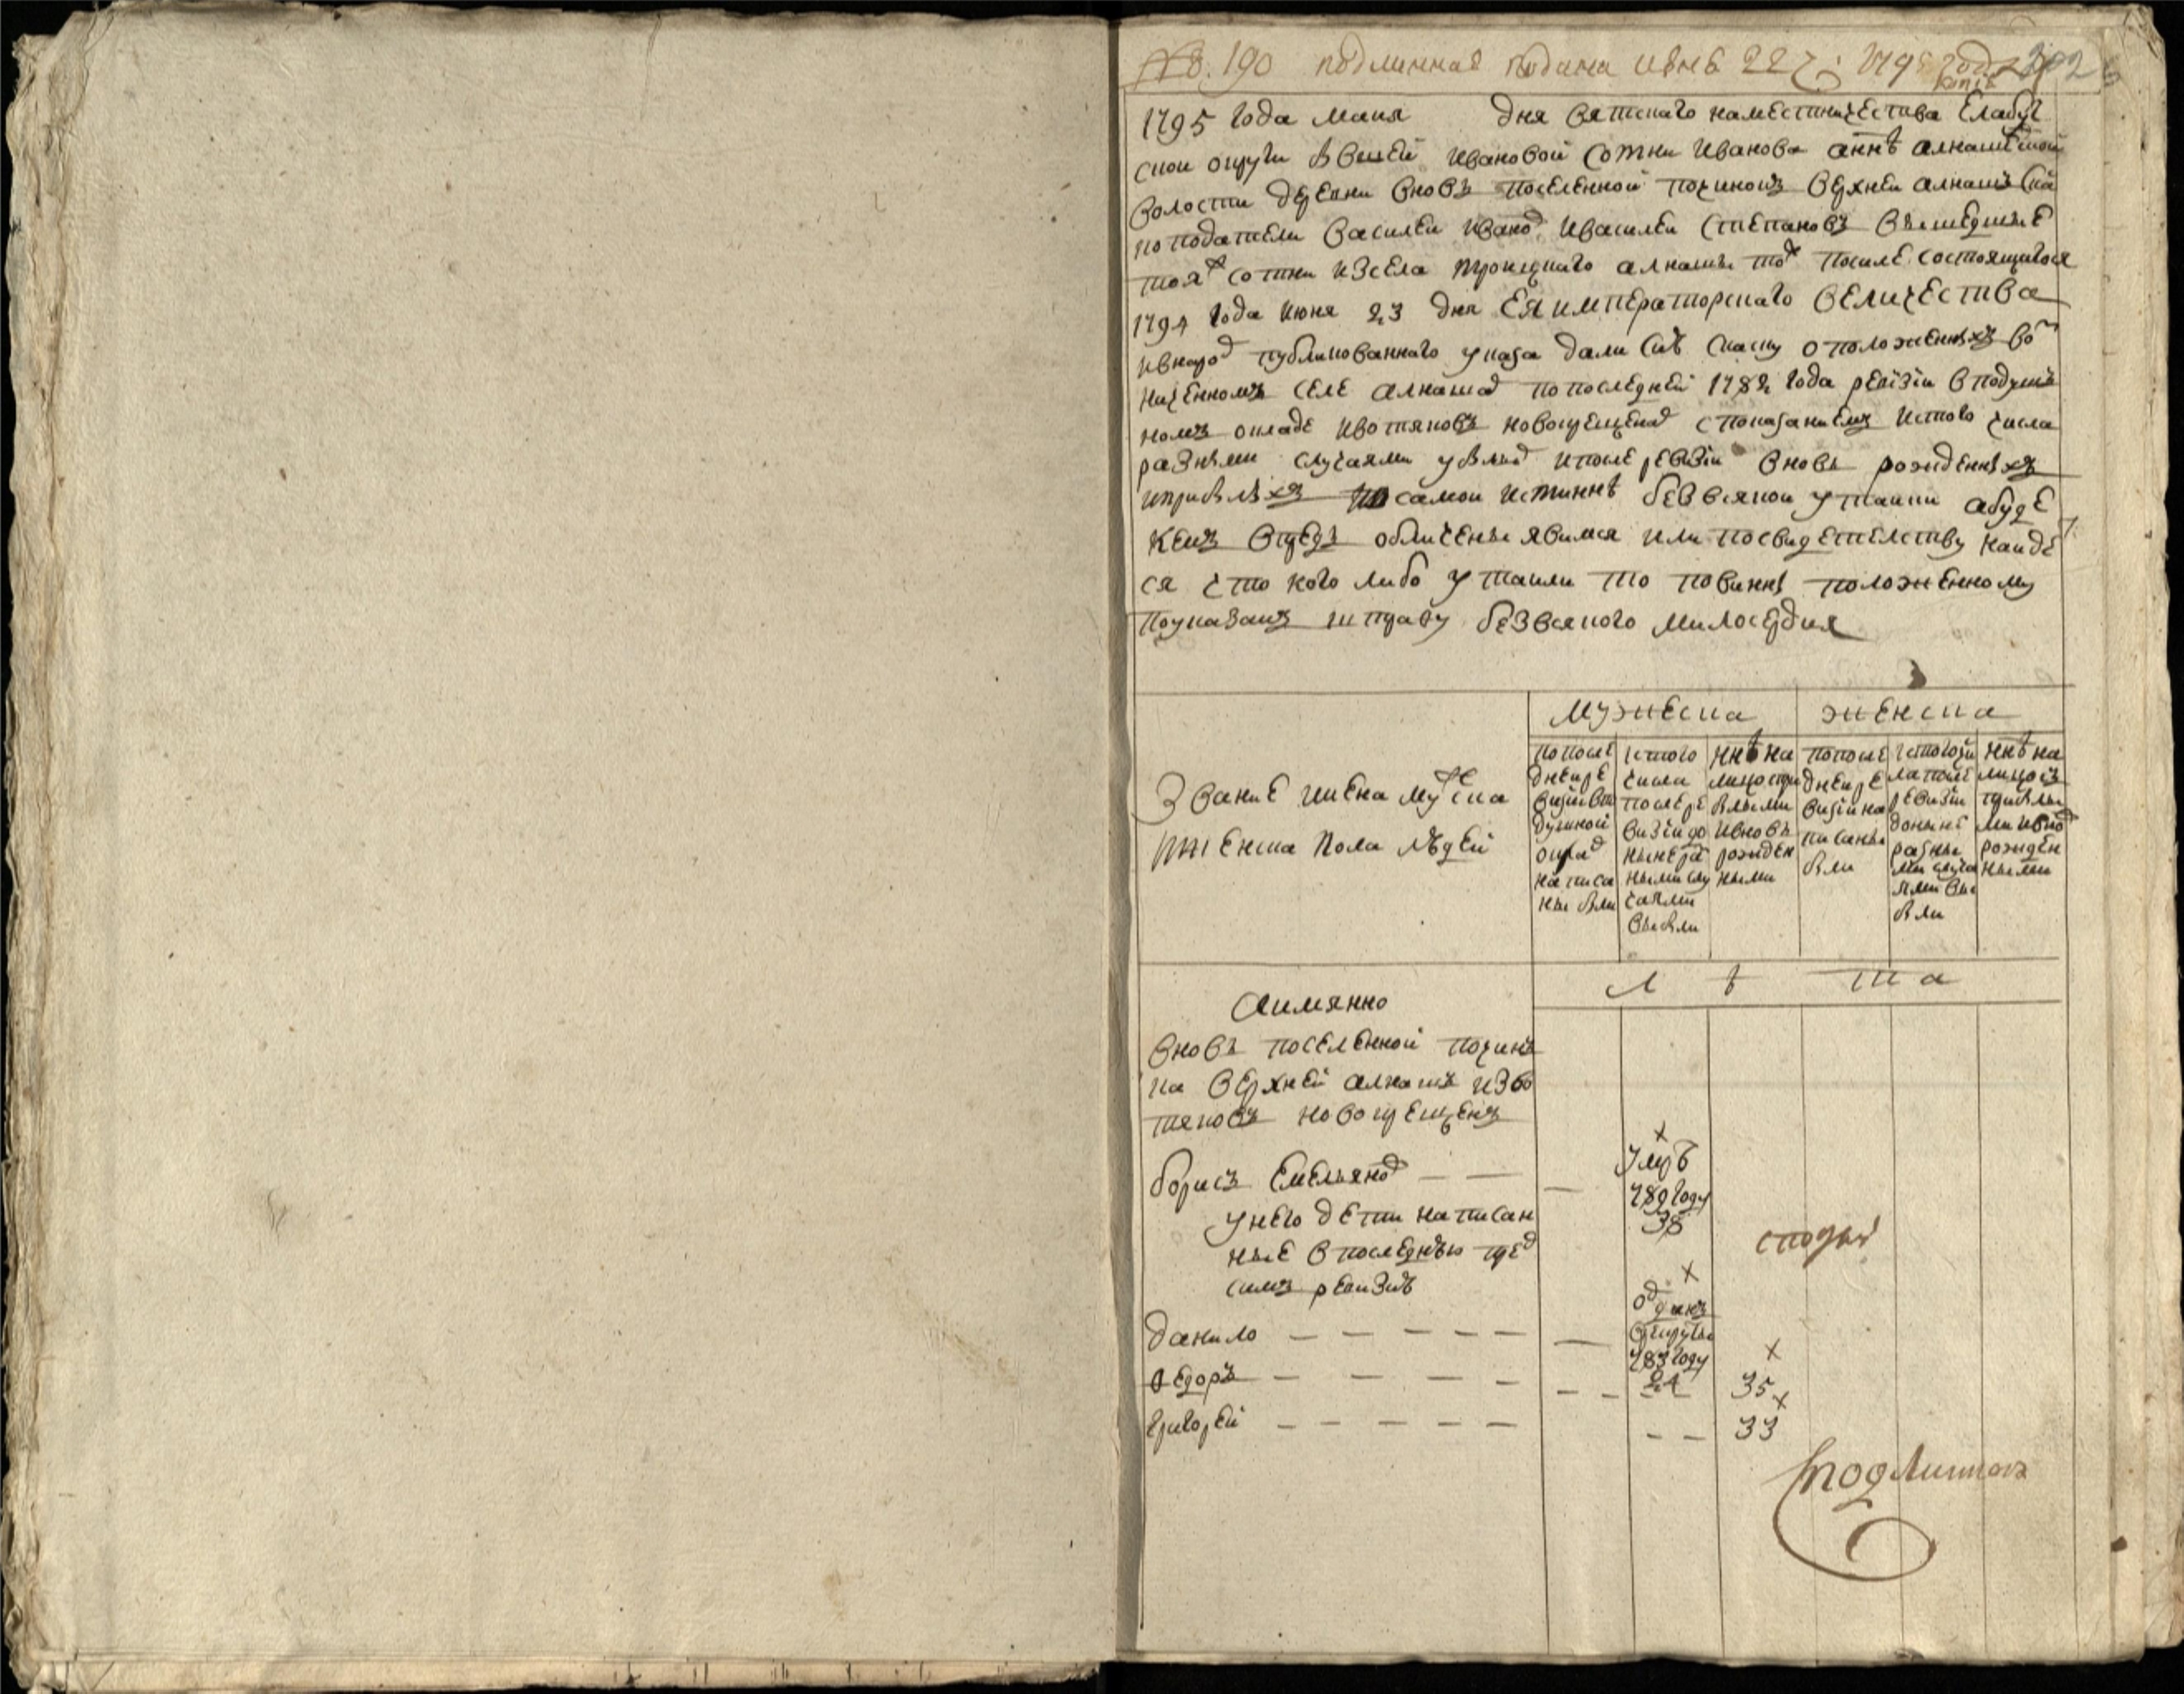 №. 190 подлинная подана июня 22 795 года
копія
1795 года маия дня вятскаго наместничества Елабуг
ской округи бывшей ивановой сотни Иванова а ннѣ алнашской
волости деревни вновь поселенной починокъ верхней алнашъ ска
поподатели василеи иванов ивасилеи степановъ вышедшие
тояж сотни изсела троицкаго алнашъ тож посиле состоящагося
1794 года июня 23 дня Ея императорскаго величества
ивнарод публикованнаго указа дали сию скаску о положенныхъ во
наченномъ селе алнашах по последней 1782 года ревизіи в подуш
номъ окладе ивотяковъ новокрещенах с показаниемъ истого числа
разными случаями убылых ипосле ревизіи вновь рожденныхъ
иприбылыхъ по самой истиннѣ безвсякой утайки абуде
кемъ впредь обличены явимся или посвидетелству найде
ся что кого либо утаили то повинны положенному
поуказамъ штрафу безвсякого милосердия
мужеска женска
Звание имена мужеска
иженска пола людей
попосле
днейре
визіивпо
душной
оклад
написа
ны были
истого
числа
послере
визіидо
нынераз
нымислу
чаями
выбыли
ннѣ на
лицоспри
былыми
ивновь
рожден
ными
попосле
днейре
визіина
писаны
были
истогочи
лапосле
ревизіи
донынѣ
разны
ми случа
ями вы
были
ннѣ на
лицосъ
прибылы
ми ивнов
рожден
ными
л ѣ т а
Аимянно
вновь поселенной почин
ка верхней алнашъ изво
тяковъ новокрещенъ
борисъ Емельянов — —
умрѣ
789 году
38
унего дети написан
ные впоследнюю пред
симъ ревизию
данило — — — — —
отданъ
врекруты
783 году
24
ѳедоръ — — — — 35
григорей — — — — — 33
сподлин
Сподлинною